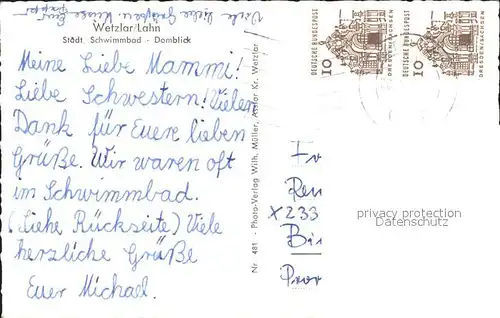 Viele liebe Grüße u. Küsse Euer Pappi
Wetzlar/Lahn
Städt. Schwimmbad - Domblick
Meine Liebe Mammi!
Liebe Schwestern! Vielen
Dank für Euere lieben
Grüße. Wir waren oft
im Schwimmbad.
(Siehe Rückseite) Viele
herzliche Grüße
Euer Michael.
Nr. 481 - Photo-Verlag Wilh. Müller, Asslar Kr. Wetzlar
DEUTSCHE BUNDESPOST
10
DRESDEN/SACHSEN
DEUTSCHE BUNDESPOST
10
DRESDEN/SACHSEN
X233
privacy protection
Datenschutz